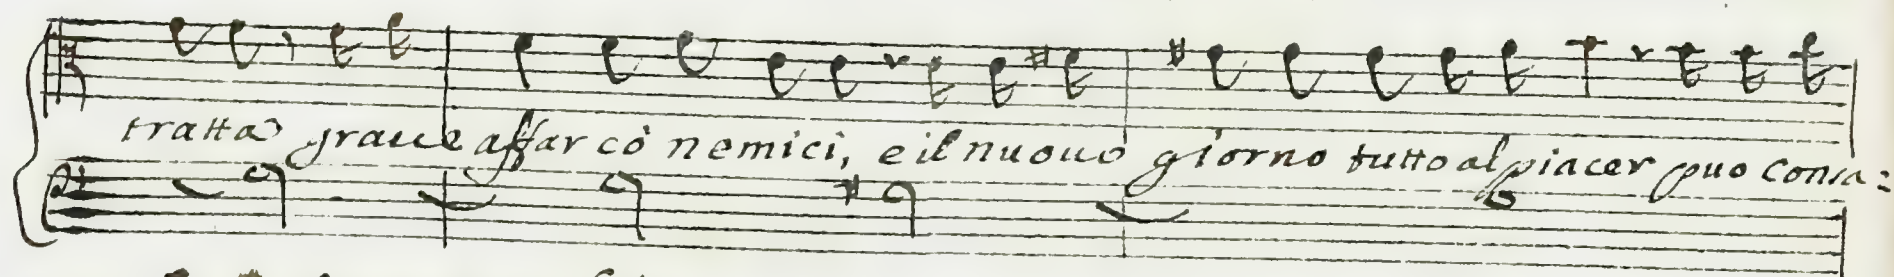 tratta graue affar cò nemici, e il nuouo giorno tutto al piacer puo consa=